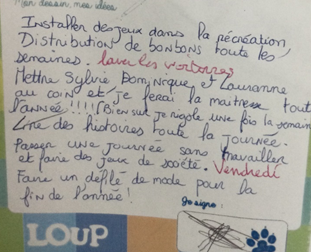 Mon dessin, mes idées
Installer des jeux dans la récréation,
Distribution de bonbons toute les
semaines. laver les
Mettre Sylvie Dominique & Lauranne
au coin et je ferai la maitresse tout
l'année !!!! (Bien sur je rigole une fois la semaine
Lire des histoires toute la journée.
Passer une journée sans travailler
et faire des jeux de société. Vendredi
Faire un défilé de mode pour la
fin de l'année!
Je signe :
LOUP